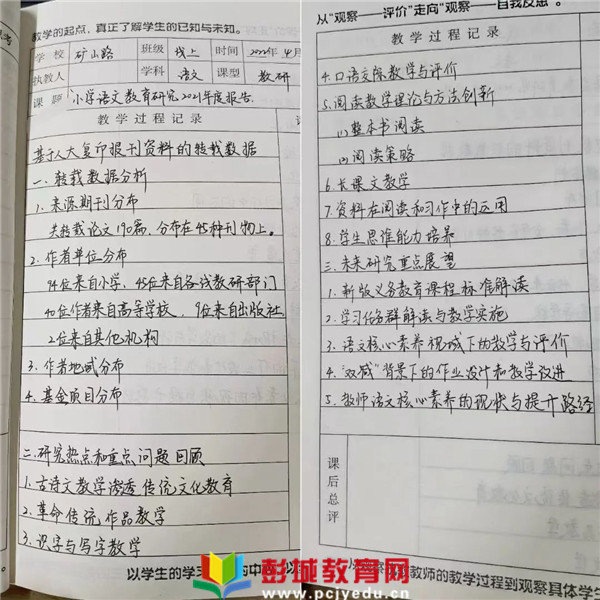 教学的起点，真正了解学生的已知与未知。
学校 矿山路 班级 线上 时间 2022年4月
执教人 学科 语文 课型 教研
课题 小学语文教育研究2021年度报告.
教学过程记录
基于人大复印报刊资料的转载数据
一、转载数据分析
1. 来源期刊分布
共转载论文190篇,分布在45种刊物上。
2. 作者单位分布
94位来自小学, 45位来自各级教研部门
40位作者来自高等学校, 9位来自出版社
2位来自其他机构
3. 作者地域分布
4. 基金项目分布
二、研究热点和重点问题回顾
1. 古诗文教学渗透传统文化教育
2. 革命传统作品教学
3. 识字与写字教学
以学生的学习
从“观察——评价”走向“观察——自我反思”。
教学过程记录
4. 口语交际教学与评价
5. 阅读教学理论与方法创新
(1) 整本书阅读
(2) 阅读策略
6. 长课文教学
7. 资料在阅读和习作中的运用
8. 学生思维能力培养
三、未来研究重点展望
1. 新版义务教育课程标准解读
2. 学习任务群解读与教学实施
3. 语文核心素养视域下的教学与评价
4. “双减”背景下的作业设计和教学改进
5. 教师语文核心素养的现状与提升路径
课后总评
教师的教学过程到观察具体学生
彭城教育网
www.pcjyedu.cn